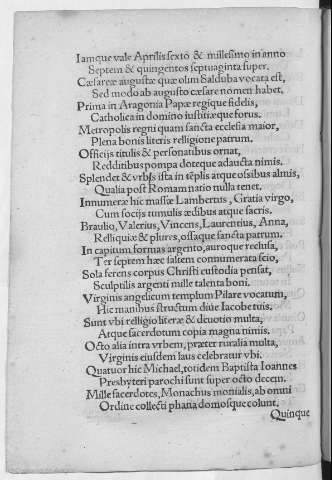 Iamque vale Aprilis sexto & millesimo in anno
Septem & quingentos septuaginta super.
Cæsareæ augustæ quæ olim Salduba vocata est,
Sed modo ab augusto cæsare nomen habet.
Prima in Aragonia Papæ regique fidelis,
Catholica in domino iustitiæque forus.
Metropolis regni quam sancta ecclesia maior,
Plena bonis literis relligione patrum.
Officijs titulis & personatibus ornat,
Redditibus pompa doteque adaucta nimis.
Splendet & vrbs ista in tẽplis atque ossibus almis,
Qualia post Romam natio nulla tenet.
Innumeræ hic massæ Lambertus, Gratia virgo,
Cum socijs tumulis ædibus atque sacris.
Braulio, Valerius, Vincens, Laurentius, Anna,
Relliquiæ & plures, ossaque sancta patrum.
In capitum formas argento, auroque reclusa,
Ter septem hæc saltem connumerata scio,
Sola ferens corpus Christi custodia pensat,
Sculptilis argenti mille talenta boni.
Virginis angelicum templum Pilare vocatum,
Hic manibus structum diue Iacobe tuis.
Sunt vbi relligio literæ & deuotio multa,
Atque sacerdotum copia magna nimis.
Octo alia intra vrbem, præter ruralia multa,
Virginis eiusdem laus celebratur vbi.
Quatuor hic Michael, totidem Baptista Ioannes
Presbyteri parochi sunt super octo decem.
Mille sacerdotes, Monachus monialis, ab omni
Ordine collecti phana domosque colunt.
Quinque